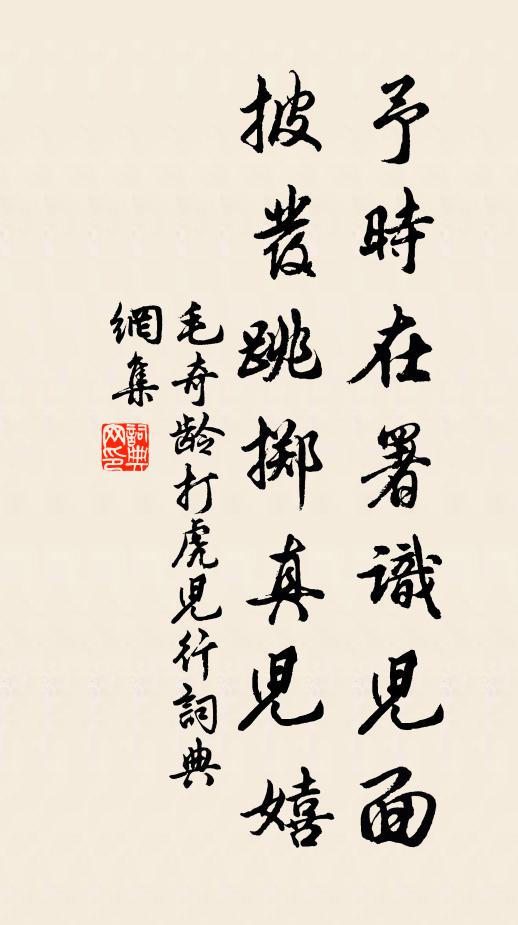 予時在署識児面
披發跳擲真児嬉
毛奇龄打虎児行詞典
網集
詞典
网印